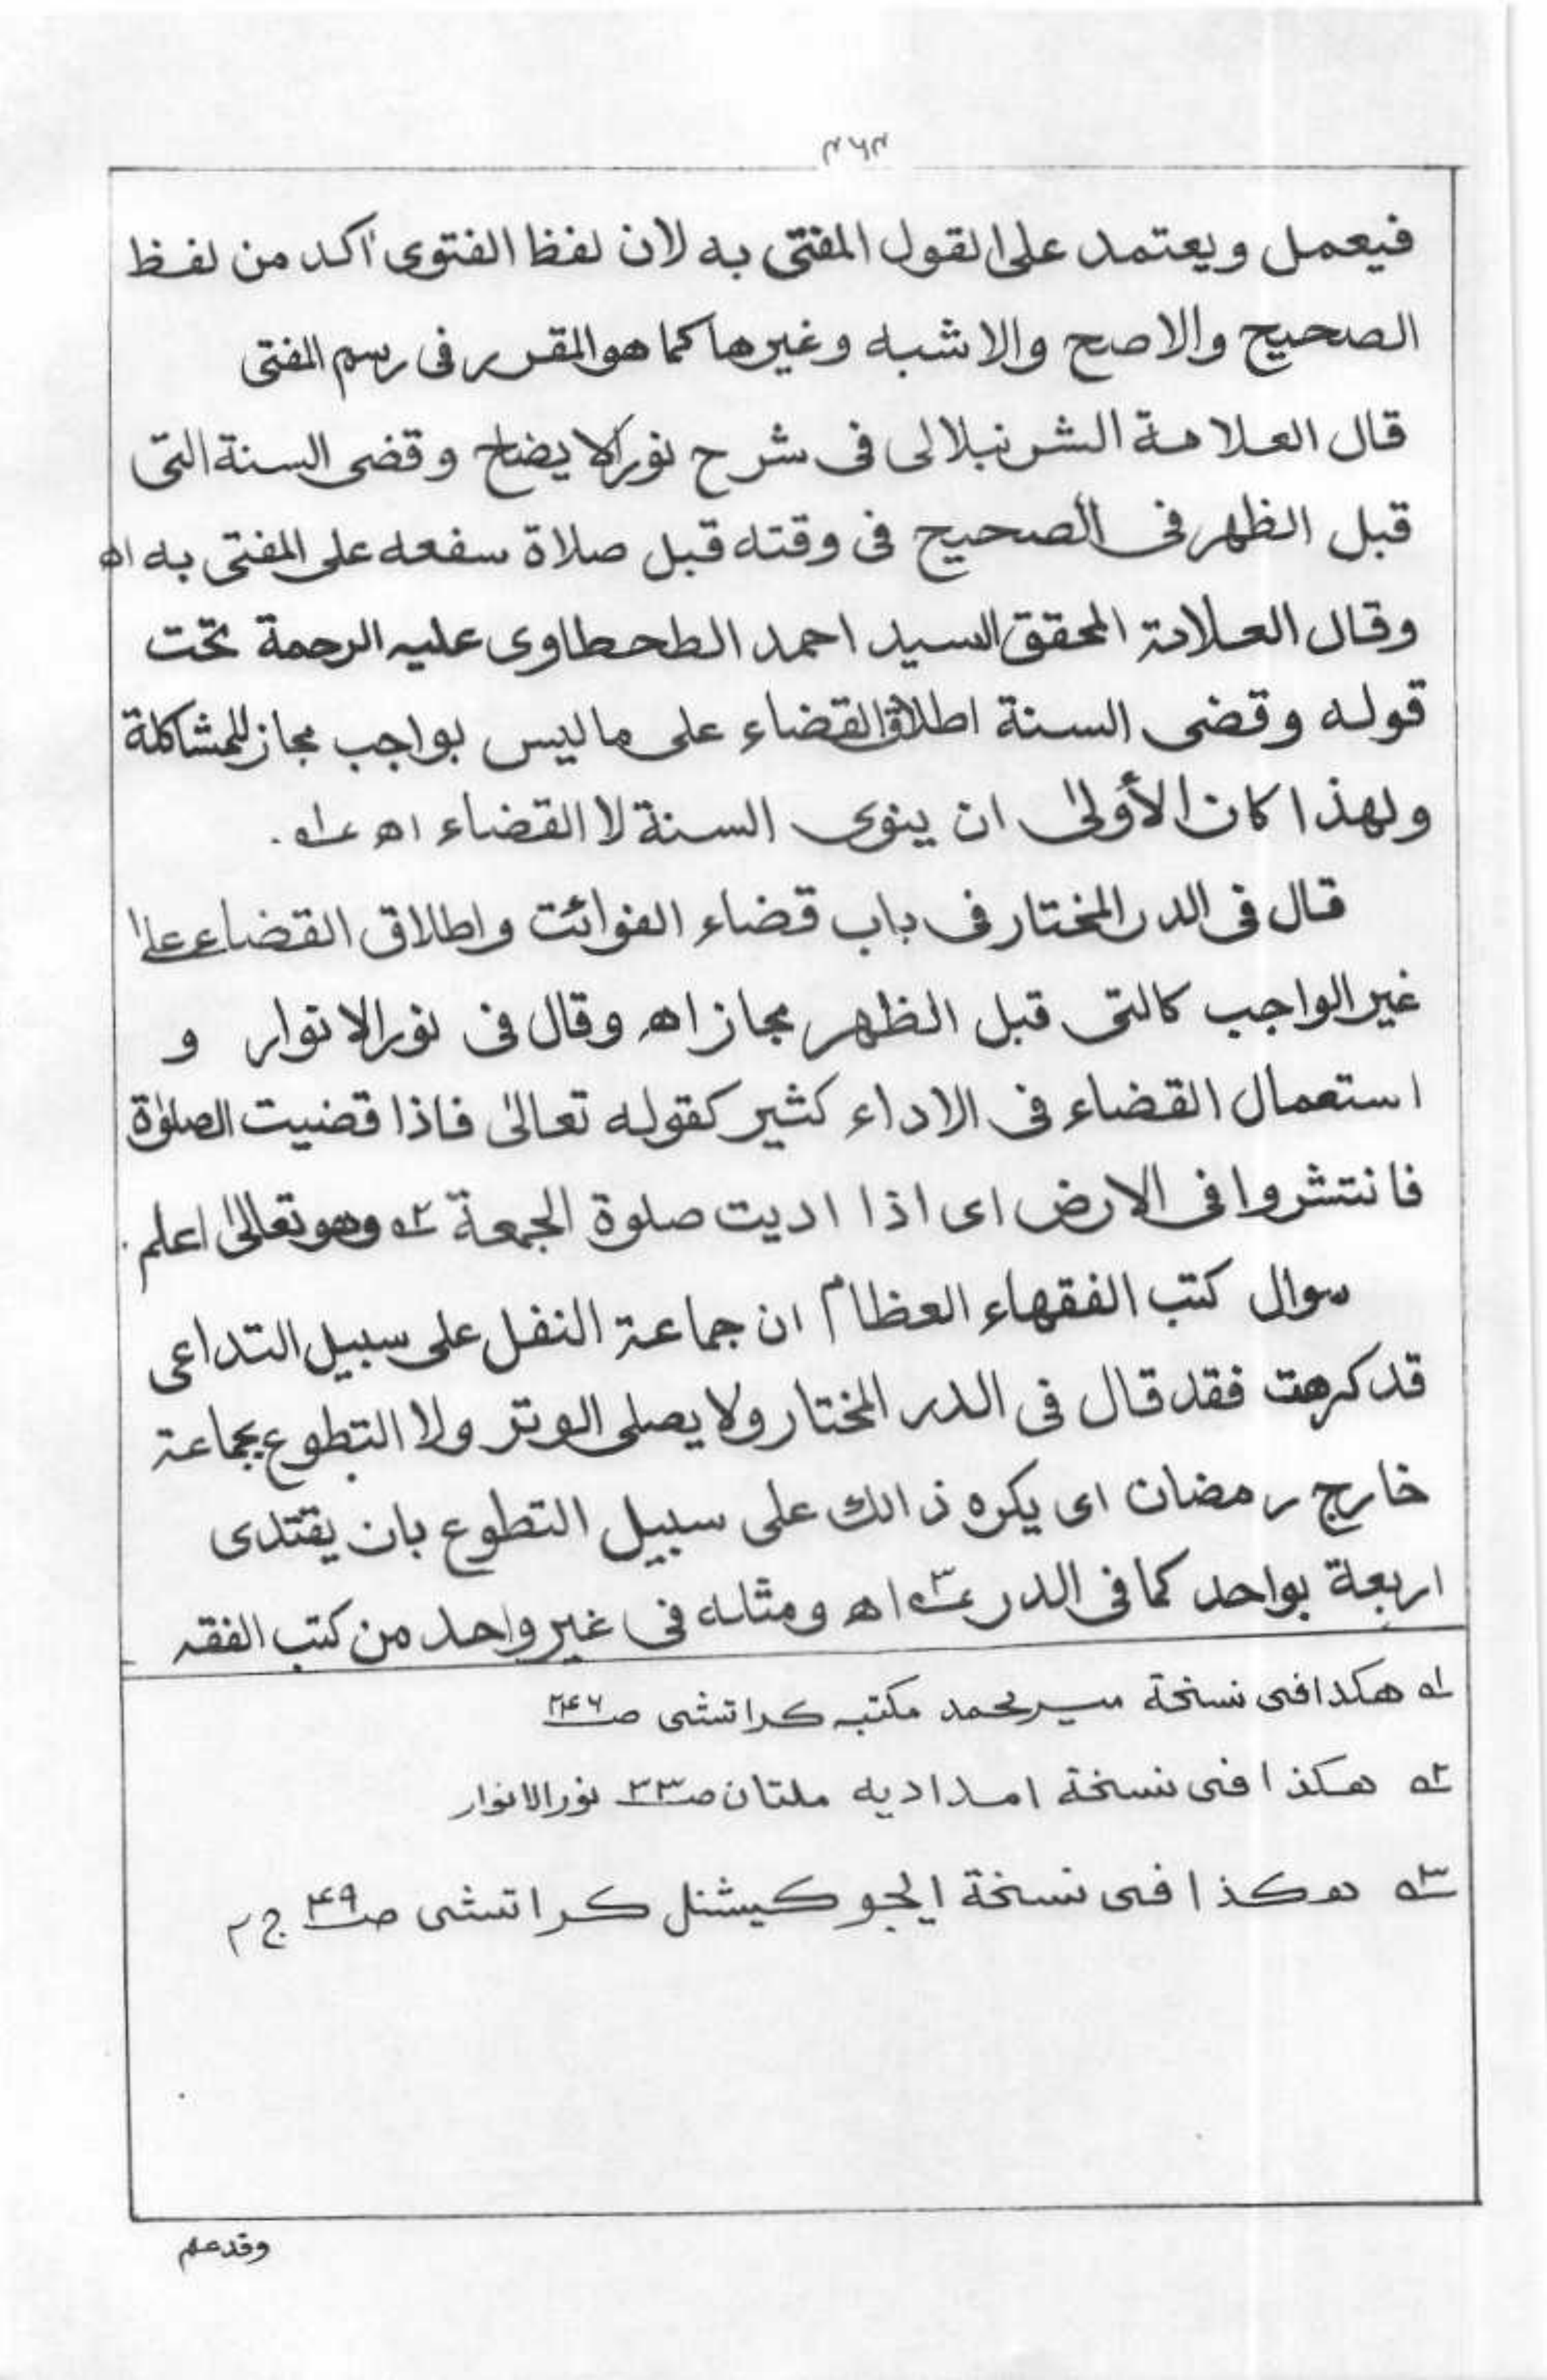 ۲۶۲
فيعمل ويعتمد على القول المفتى به لان لفظ الفتوى آكد من لفظ
الصحيح والاصح والاشبه وغيرها كما هو المقرر فى رسم المفتى
قال العلامة الشرنبلالى فى شرح نور الايضاح وقضى السنة التى
قبل الظهر فى الصحيح فى وقته قبل صلاة سفعه على المفتى به اه
وقال العلامة المحقق السيد احمد الطحطاوى عليه الرحمة تحت
قوله وقضى السنة اطلاق القضاء على ما ليس بواجب مجاز للمشاكلة
ولهذا كان الأولىٰ ان ينوى السنة لا القضاء اه ؎۱.
قال فى الدر المختار فى باب قضاء الفوائت واطلاق القضاء علىٰ
غير الواجب كالتى قبل الظهر مجاز اه وقال فى نور الانوار و
استعمال القضاء فى الاداء كثير كقوله تعالىٰ فاذا قضيت الصلوٰة
فانتشروا فى الارض اى اذا اديت صلوة الجمعة ؎۲ وهو تعالىٰ اعلم.
سوال كتب الفقهاء العظام ان جماعة النفل على سبيل التداعى
قد كرهت فقد قال فى الدر المختار ولا يصلى الوتر ولا التطوع بجماعة
خارج رمضان اى يكره ذالك على سبيل التطوع بان يقتدى
اربعة بواحد كما فى الدر ؎۳ اه ومثله فى غير واحد من كتب الفقه
؎۱ هكذا فى نسخة مير محمد مكتبه كراتشى صـ ۲۴۶
؎۲ هكذا فى نسخة امداديه ملتان صـ ۳۳ نور الانوار
؎۳ هكذا فى نسخة ايجوكيشنل كراتشى صـ ۴۹ ج ۲
وقد علم